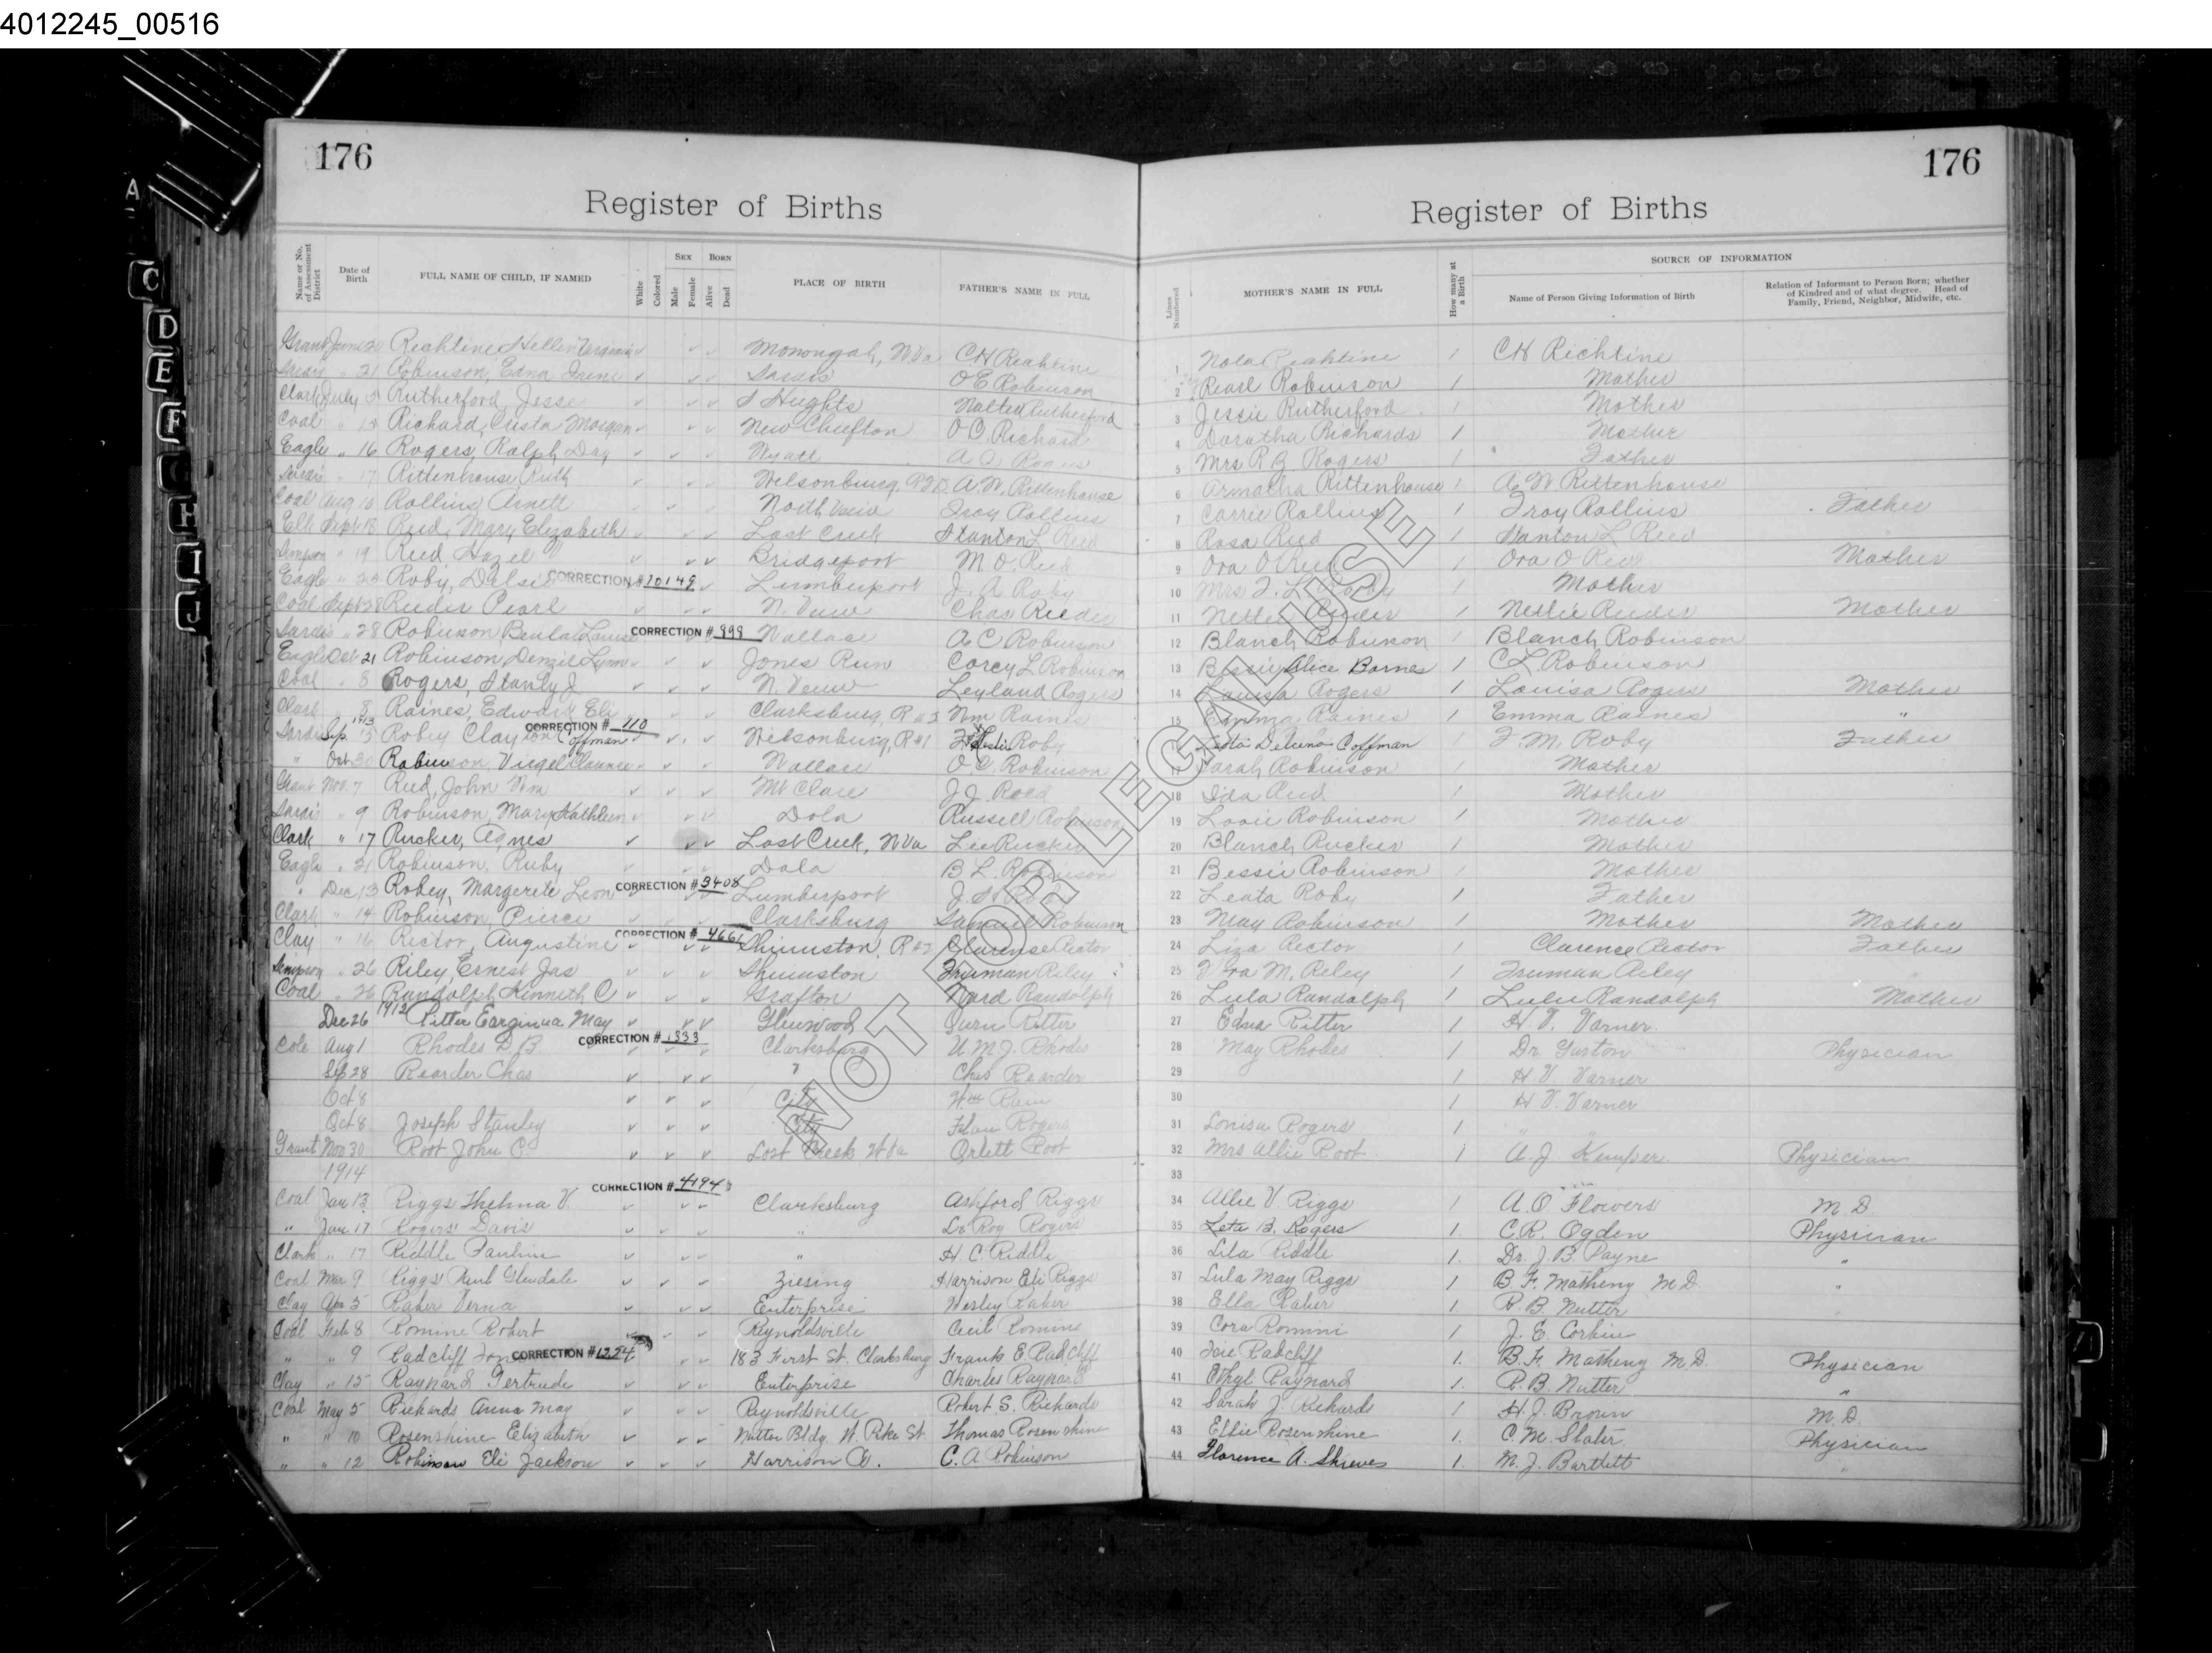 4012245_00516
176
176
Register of Births
Register of Births
Name or No. of Assessment District
Date of Birth
FULL NAME OF CHILD, IF NAMED
White
Colored
SEX
Male
Female
BORN
Alive
Dead
PLACE OF BIRTH
FATHER'S NAME IN FULL
Lines Numbered
MOTHER'S NAME IN FULL
How many at a Birth
SOURCE OF INFORMATION
Name of Person Giving Information of Birth
Relation of Informant to Person Born; whether of Kindred and of what degree. Head of Family, Friend, Neighbor, Midwife, etc.
Grant June Monongah, W Va C H 1 Nola 1 C H Richtine
Sardis " 21 Robinson, Edna Irene Sardis O E Robinson 2 Pearl Robinson 1 Mother
Clark July Rutherford, Jesse Rutherford 3 Jessie Rutherford 1 Mother
Coal " Richard, Morgan New O O Richard 4 Doratha Richards 1 Mother
Eagle " 16 Rogers, Ralph Day Wyatt Rogers 5 Mrs R Rogers 1 Father
Sardis " 17 Rittenhouse Ruth Wilsonburg, A. W. Rittenhouse 6 Armatha Rittenhouse 1 A W Rittenhouse
Coal Aug 10 Rollins, Arnett North View Troy Rollins 7 Carrie Rollins 1 Troy Rollins Father
Elk Sept 18 Reed, Mary Elizabeth Lost Creek Stanton L Reed 8 Rosa Reed 1 Stanton L Reed
Simpson " 19 Reed Hazel Bridgeport M. O. Reed 9 Ora O Reed 1 Ora O Reed Mother
Eagle " Roby, CORRECTION # 10149 Lumberport J. A Roby 10 Mrs L Roby 1 Mother
Coal Sept 28 Reeder Pearl N. View Chas Reeder 11 Reeder 1 Nellie Reeder Mother
Sardis " 28 Robinson Louise CORRECTION # 899 Wallace A C Robinson 12 Blanch Robinson 1 Blanch Robinson
Eagle Oct 21 Robinson, Denzil Lynn Jones Run Corey L Robinson 13 Bessie Alice Barnes 1 C L Robinson
Coal " 8 Rogers, Stanly J N. View Leyland Rogers 14 Louisa Rogers 1 Louisa Rogers Mother
Clark " 8 Raines, Edward Clarksburg, R Raines 15 Emma Raines 1 Emma Raines "
Sardis Sep. 1913 Robey Clayton Coffman CORRECTION # 110 Wilsonburg, R #1 Roby Coffman 1 F. M. Roby Father
" Oct 30 Robinson, Virgel Clarence Wallace O. C. Robinson 17 Sarah Robinson 1 Mother
Grant Nov. 7 Reed, John Wm Mt Clare J J. Reed 18 Ida Reed 1 Mother
Sardis " 9 Robinson, Mary Kathleen Dola Russell Robinson 19 Robinson 1 Mother
Clark " 17 Rucker, Agnes Lost Creek, W Va Lee Rucker 20 Blanch Rucker 1 Mother
Eagle " 21 Robinson, Ruby Dola B L Robinson 21 Bessie Robinson 1 Mother
" Dec 13 Robey, Margerete Leon CORRECTION # 3408 Lumberport J. Roby 22 Leata Roby 1 Father
Clark " 14 Robinson, Pierce Clarksburg Samuel Robinson 23 May Robinson 1 Mother Mother
Clay " 16 Rector, Augustine CORRECTION # 4661 Shinnston, R #2 Clarense Rector 24 Liza Rector 1 Clarence Rector Father
Simpson " 26 Riley, Ernest Jas Shinnston Truman Riley 25 M. Riley 1 Truman Riley
Coal " 26 Randolph, Kenneth C Grafton Ward Randolph 26 Lula Randolph 1 Lulu Randolph Mother
Dec 26 1912 Ritter May Glenwood Ritter 27 Edna Ritter 1 H. V. Varner
Cole Aug 1 Rhodes D B CORRECTION # 1333 Clarksburg Rhodes 28 May Rhodes 1 Dr Gaston Physician
Sep 28 Rearder Chas " Chas Rearder 29 1 H V Varner
Oct 8 City Wm 30 1 H V. Varner
Oct 8 Joseph Stanley City Rogers 31 Louisa Rogers 1 "
Grant Nov 30 Root John C. Lost Creek W Va Orlett Root 32 Mrs Allie Root 1 A. J. Kemper Physician
1914 33
Coal Jan 13 Riggs Thelma V CORRECTION # 4194 Clarksburg Ashford Riggs 34 Allie V. Riggs 1 A. O. Flowers M D
" Jan 17 Rogers Davis " Le Roy Rogers 35 Leta B. Rogers 1. C. R. Ogden Physician
Clark " 17 Riddle Pauline " H. C. Riddle 36 Lila Riddle 1. Dr. J. B. Payne "
Coal Mar 9 Riggs Glendale Ziesing Harrison Eli Riggs 37 Lula May Riggs 1 B. F. Matheny M D "
Clay Apr 5 Raber Verna Enterprise Wesley Raber 38 Ella Raber 1. R. B. Nutter
Coal Feb 8 Romine Robert Reynoldsville Cecil Romine 39 Cora Romini 1 J. E. Corbin
" " 9 Radcliff CORRECTION # 1224 183 First St. Clarksburg Frank E. Radcliff 40 Radcliff 1. B. F. Matheny M D. Physician
Clay " 15 Raynard Gertrude Enterprise Charles Raynard 41 Ethyl Raynard 1. R. B. Nutter "
Coal May 5 Richards Anna May Reynoldsville Robert S. Richards 42 Sarah J. Richards 1 H. J. Brown M. D.
" " 10 Rosenshine Elizabeth Nutter Bldg. W. Pike St. Thomas Rosenshine 43 Effie Rosenshine 1. C. M. Slater Physician
" " 12 Robinson Eli Jackson Harrison Co. C. A Robinson 44 Florence A. Shreves 1. M. J. Bartlett "
NOT FOR LEGAL USE
A
C
D
E
F
G
H
I
J